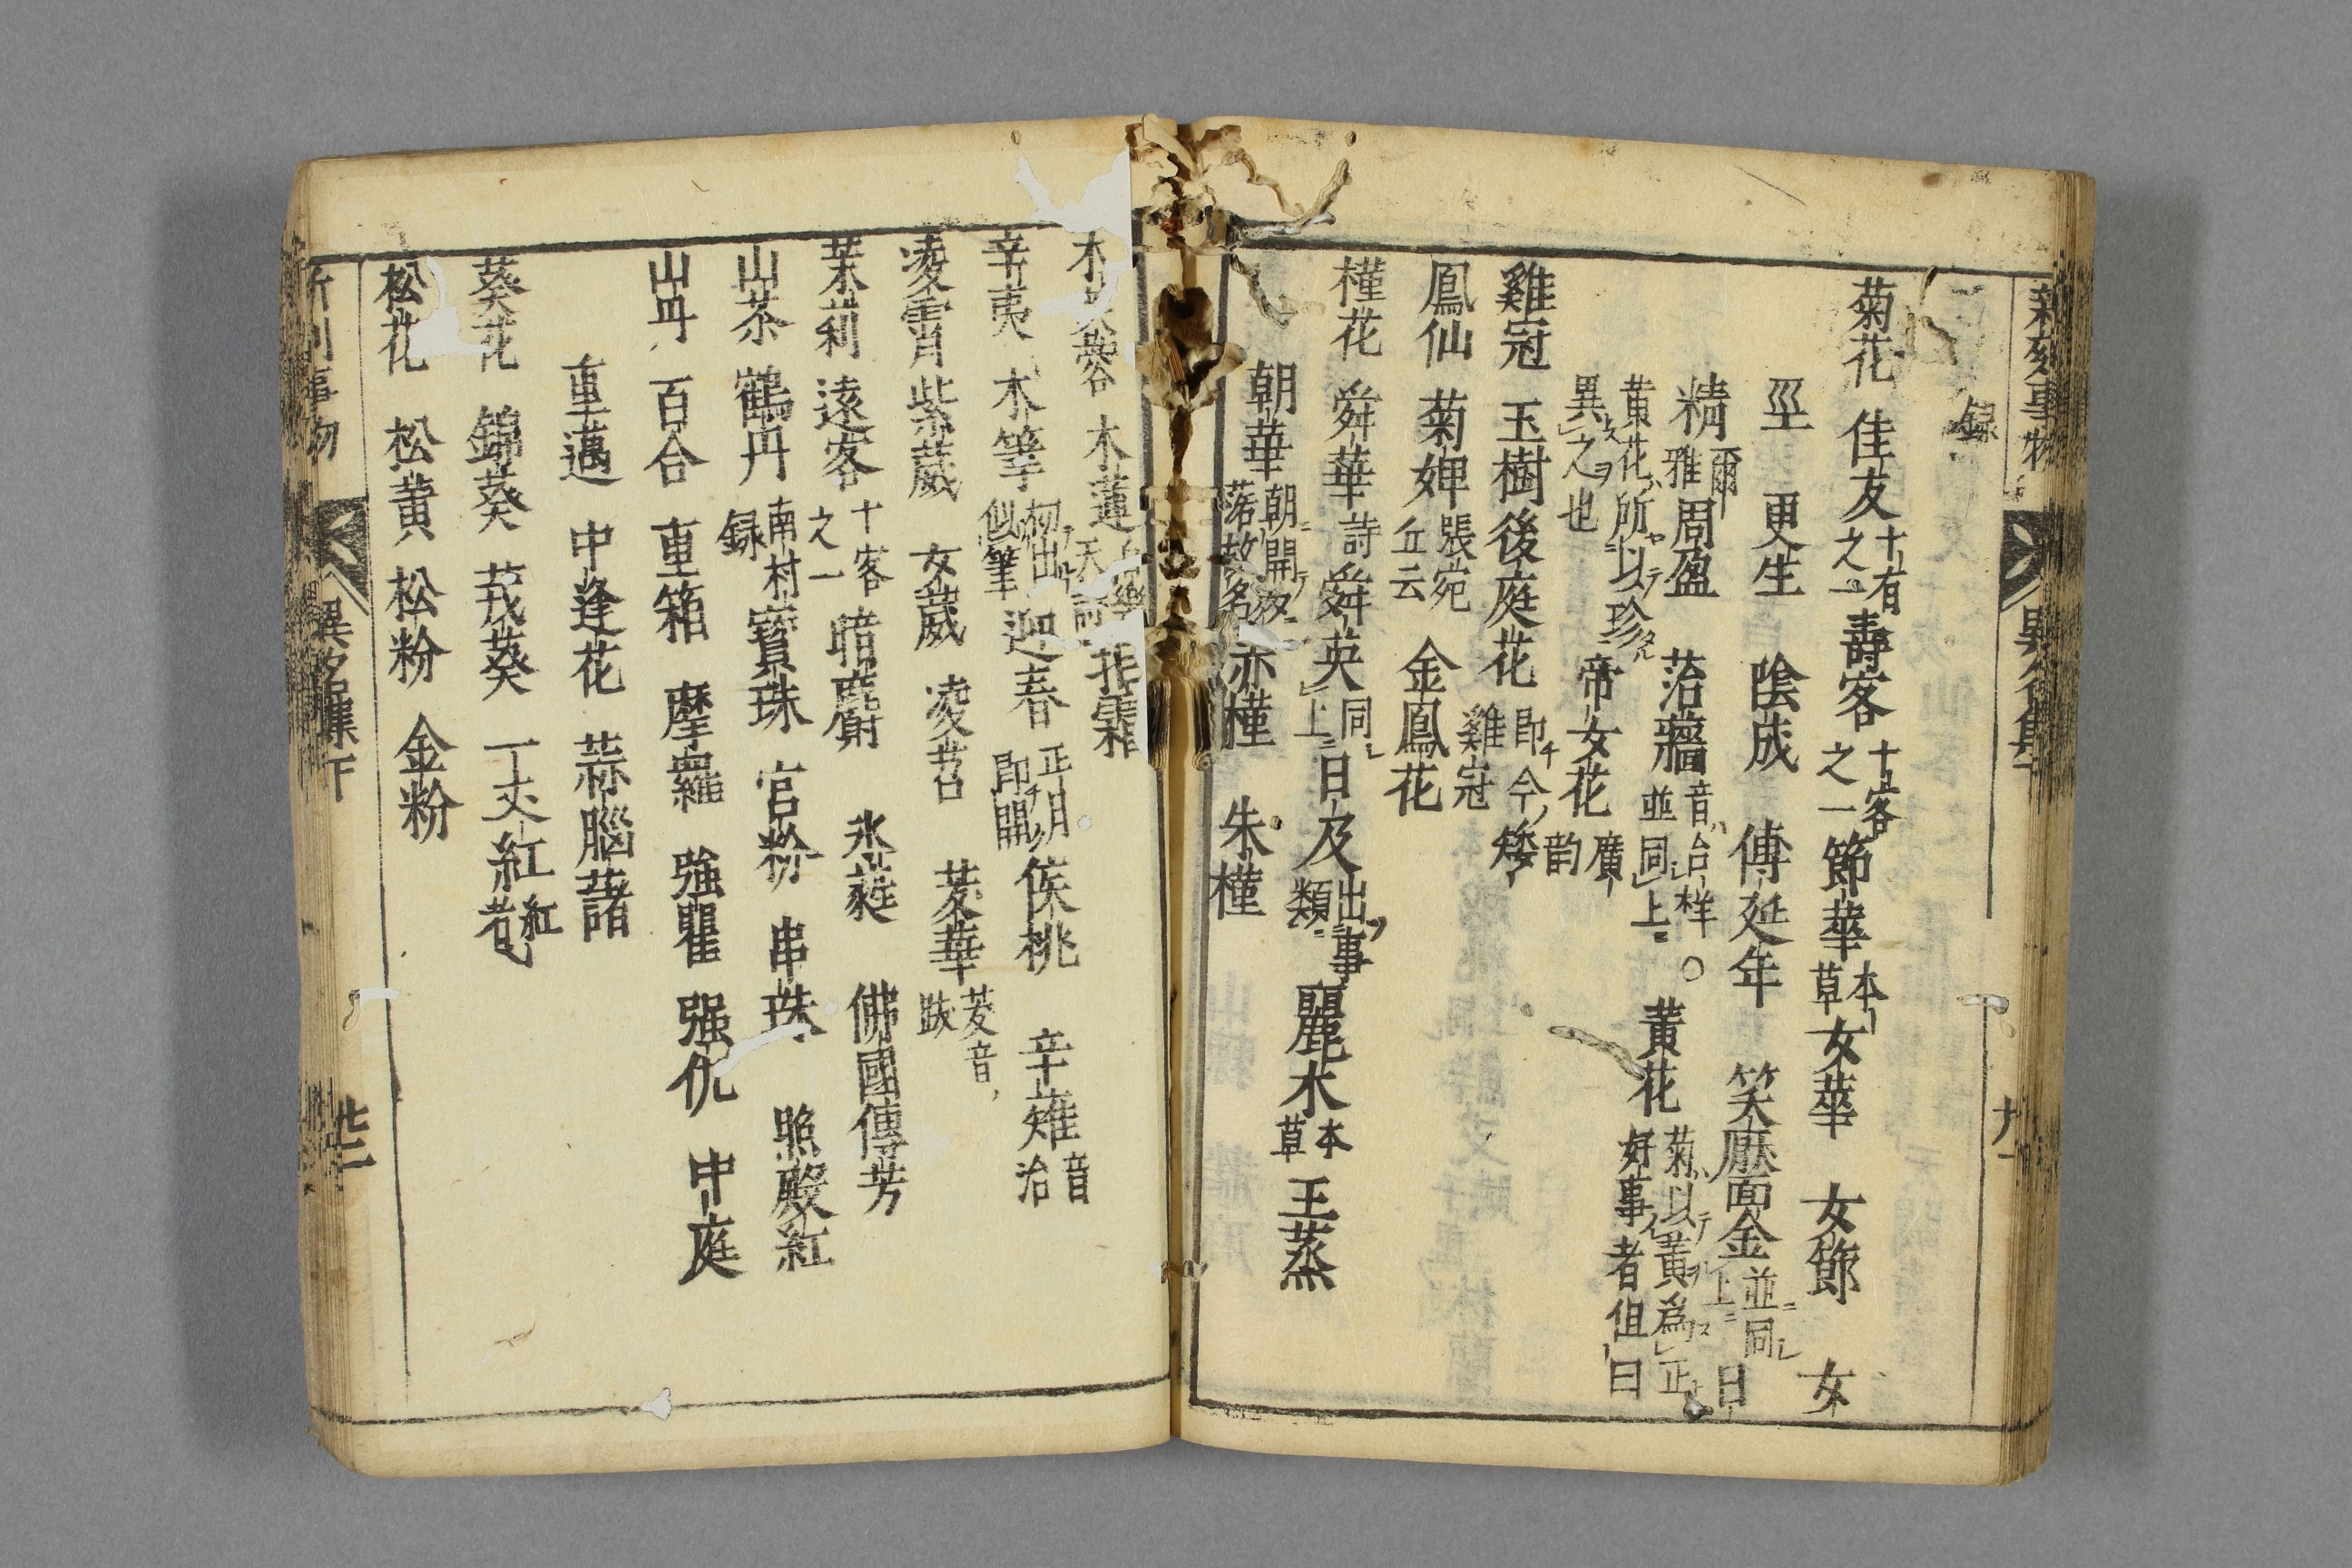 新刻事物 異名集
録
菊花 佳友 十有之一 壽客 十客之一 節華 本草 女華 女節 女
坙 更生 陰成 傅延年 笑靨金 並同上 日
精 爾雅 周盈 治蘠 音台样並同上 ○ 黄花 菊以黄爲正好事者但曰
黄花所以珍異之也 帝女花 廣韵
雞冠 玉樹後庭花 即今矮雞冠
鳳仙 菊婢 張宛丘云 金鳳花
槿花 舜華 詩 舜英 同上 日及 出事類 麗木 本草 王蒸
朝華 朝開夜落故名 赤槿 朱槿
木芙蓉 木蓮 拒霜
辛夷 木筆 初出似筆 迎春 正月即開 侯桃 辛雉 音治
凌霄 紫葳 女葳 凌苕 菱華 菱音跋
茉莉 遠客 十客之一 暗麝 氷蕤 佛國傳芳
山茶 鶴丹 南村録 寳珠 宮粉 串珠 照殿紅
山丹 百合 重箱 摩羅 強瞿 强仇 中庭
重邁 中逢花 蒜腦藷
葵花 錦葵 茙葵 一丈紅 紅者
松花 松黄 松粉 金粉
新刻事物 異名集下